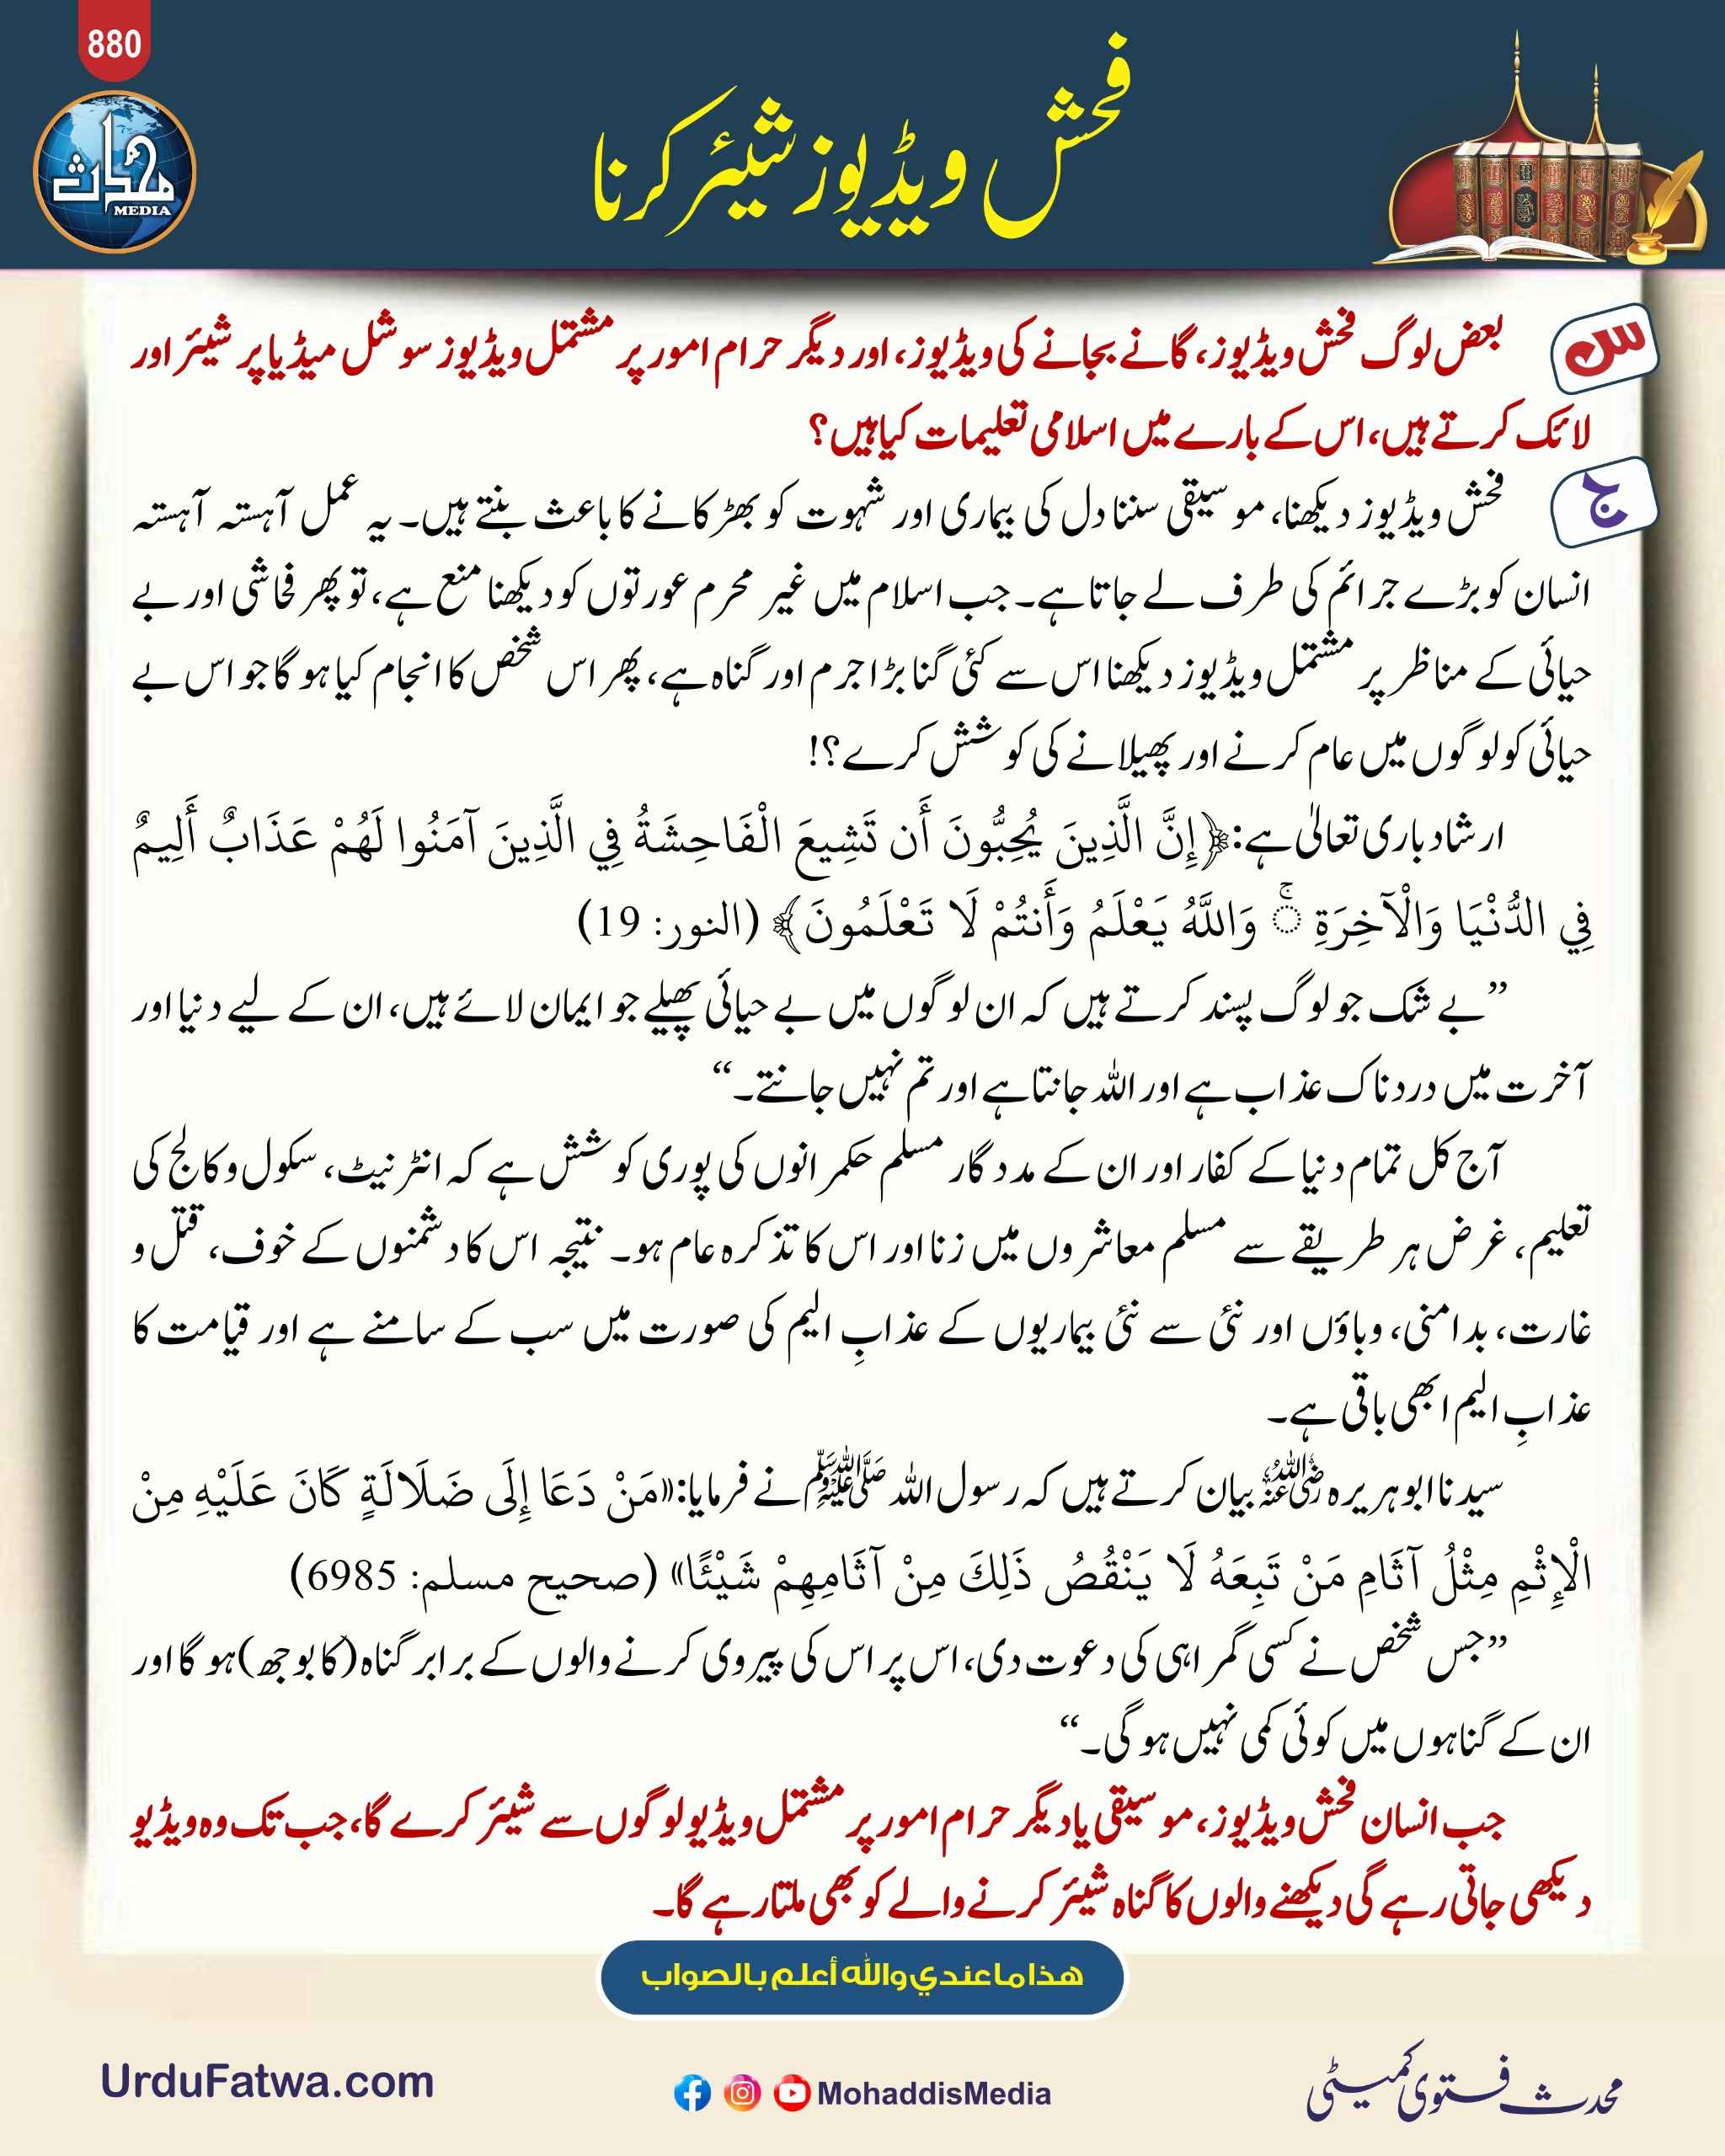 880
محدث
MEDIA
فحش ویڈیوز شیئر کرنا
س
بعض لوگ فحش ویڈیوز، گانے بجانے کی ویڈیوز، اور دیگر حرام امور پر مشتمل ویڈیوز سوشل میڈیا پر شیئر اور
لائک کرتے ہیں، اس کے بارے میں اسلامی تعلیمات کیا ہیں؟
ج
فحش ویڈیوز دیکھنا، موسیقی سننا دل کی بیماری اور شہوت کو بھڑکانے کا باعث بنتے ہیں۔ یہ عمل آہستہ آہستہ
انسان کو بڑے جرائم کی طرف لے جاتا ہے۔ جب اسلام میں غیر محرم عورتوں کو دیکھنا منع ہے، تو پھر فحاشی اور بے
حیائی کے مناظر پر مشتمل ویڈیوز دیکھنا اس سے کئی گنا بڑا جرم اور گناہ ہے، پھر اس شخص کا انجام کیا ہو گا جو اس بے
حیائی کو لوگوں میں عام کرنے اور پھیلانے کی کوشش کرے؟!
ارشاد باری تعالیٰ ہے: ﴿إِنَّ الَّذِينَ يُحِبُّونَ أَن تَشِيعَ الْفَاحِشَةُ فِي الَّذِينَ آمَنُوا لَهُمْ عَذَابٌ أَلِيمٌ
فِي الدُّنْيَا وَالْآخِرَةِ ۚ وَاللَّهُ يَعْلَمُ وَأَنتُمْ لَا تَعْلَمُونَ﴾ (النور: 19)
”بے شک جو لوگ پسند کرتے ہیں کہ ان لوگوں میں بے حیائی پھیلے جو ایمان لائے ہیں، ان کے لیے دنیا اور
آخرت میں دردناک عذاب ہے اور اللہ جانتا ہے اور تم نہیں جانتے۔“
آج کل تمام دنیا کے کفار اور ان کے مددگار مسلم حکمرانوں کی پوری کوشش ہے کہ انٹرنیٹ، سکول و کالج کی
تعلیم، غرض ہر طریقے سے مسلم معاشروں میں زنا اور اس کا تذکرہ عام ہو۔ نتیجہ اس کا دشمنوں کے خوف، قتل و
غارت، بدامنی، وباؤں اور نئی سے نئی بیماریوں کے عذابِ الیم کی صورت میں سب کے سامنے ہے اور قیامت کا
عذابِ الیم ابھی باقی ہے۔
سیدنا ابو ہریرہ رضی اللہ عنہ بیان کرتے ہیں کہ رسول اللہ ﷺ نے فرمایا: «مَنْ دَعَا إِلَى ضَلَالَةٍ كَانَ عَلَيْهِ مِنْ
الْإِثْمِ مِثْلُ آثَامِ مَنْ تَبِعَهُ لَا يَنْقُصُ ذَلِكَ مِنْ آثَامِهِمْ شَيْئًا» (صحيح مسلم: 6985)
”جس شخص نے کسی گمراہی کی دعوت دی، اس پر اس کی پیروی کرنے والوں کے برابر گناہ (کا بوجھ) ہو گا اور
ان کے گناہوں میں کوئی کمی نہیں ہو گی۔“
جب انسان فحش ویڈیوز، موسیقی یا دیگر حرام امور پر مشتمل ویڈیو لوگوں سے شیئر کرے گا، جب تک وہ ویڈیو
دیکھی جاتی رہے گی دیکھنے والوں کا گناہ شیئر کرنے والے کو بھی ملتا رہے گا۔
هذا ما عندي والله أعلم بالصواب
محدث فتویٰ کمیٹی
MohaddisMedia
UrduFatwa.com